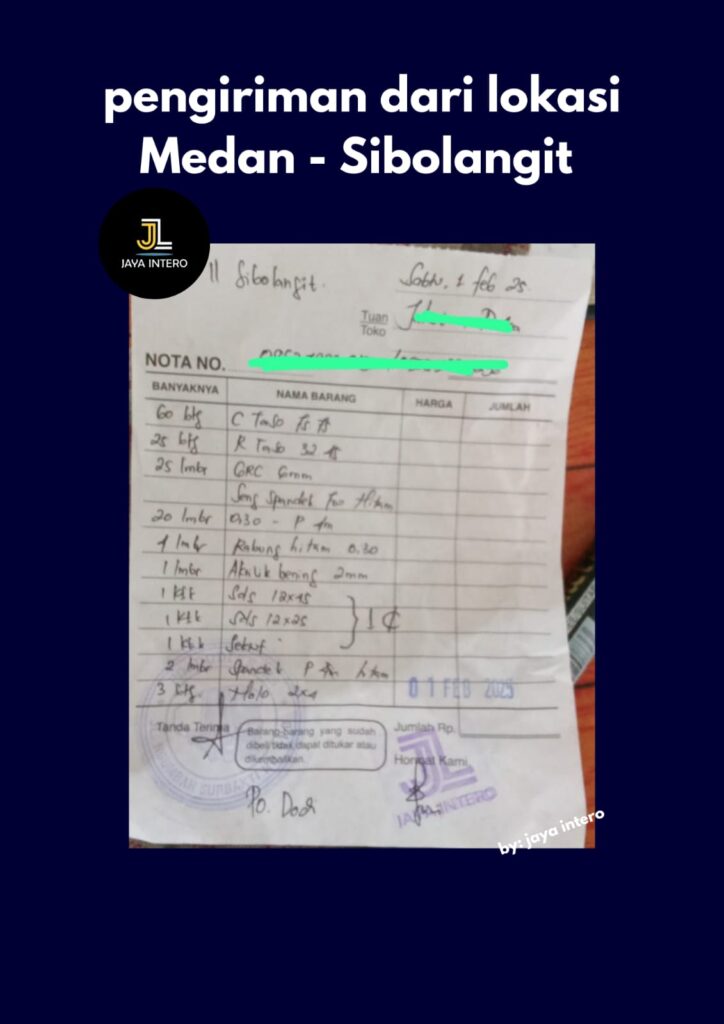 pengiriman dari lokasi
Medan - Sibolangit
JL
JAYA INTERO
Sibolangit.
Sabtu. 1 Feb 25.
Tuan
Toko
NOTA NO.
BANYAKNYA NAMA BARANG HARGA JUMLAH
60 btg C Taso
25 btg R Taso 32
25 lmbr GRC 6mm
Seng Spandek Hitam
20 lmbr 0.30 - P
1 lmbr Rabung hitam 0.30
1 lmbr Akrilik bening 2mm
1 ktk Sds 12x45
1 ktk Sds 12x25
1 ktk
2 lmbr Spandek P hitam
3 btg. Holo 2x4
01 FEB 2025
Tanda Terima
Barang-barang yang sudah
dibeli tidak dapat ditukar atau
dikembalikan.
Jumlah Rp.
Hormat Kami,
JL
JAYA INTERO
Po. Dodi
by: jaya intero